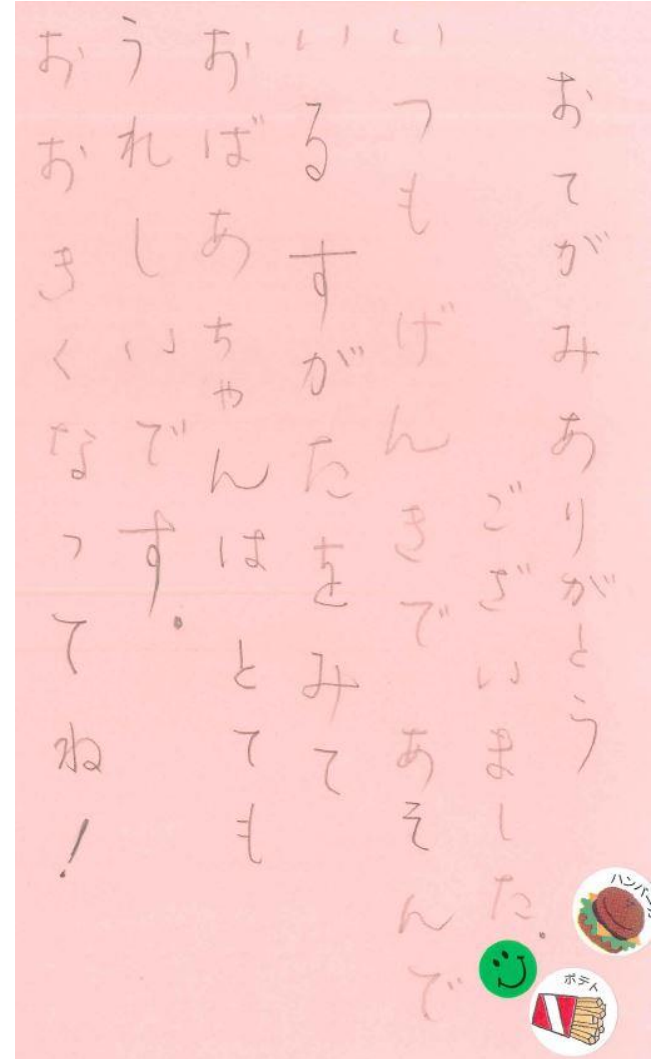 おてがみありがとう
ございました.
いつも げんきで あそんで
いる すがたをみて
おばあちゃんは とても
うれしいです.
おおきくなってね!
ハンバーガー
ポテト